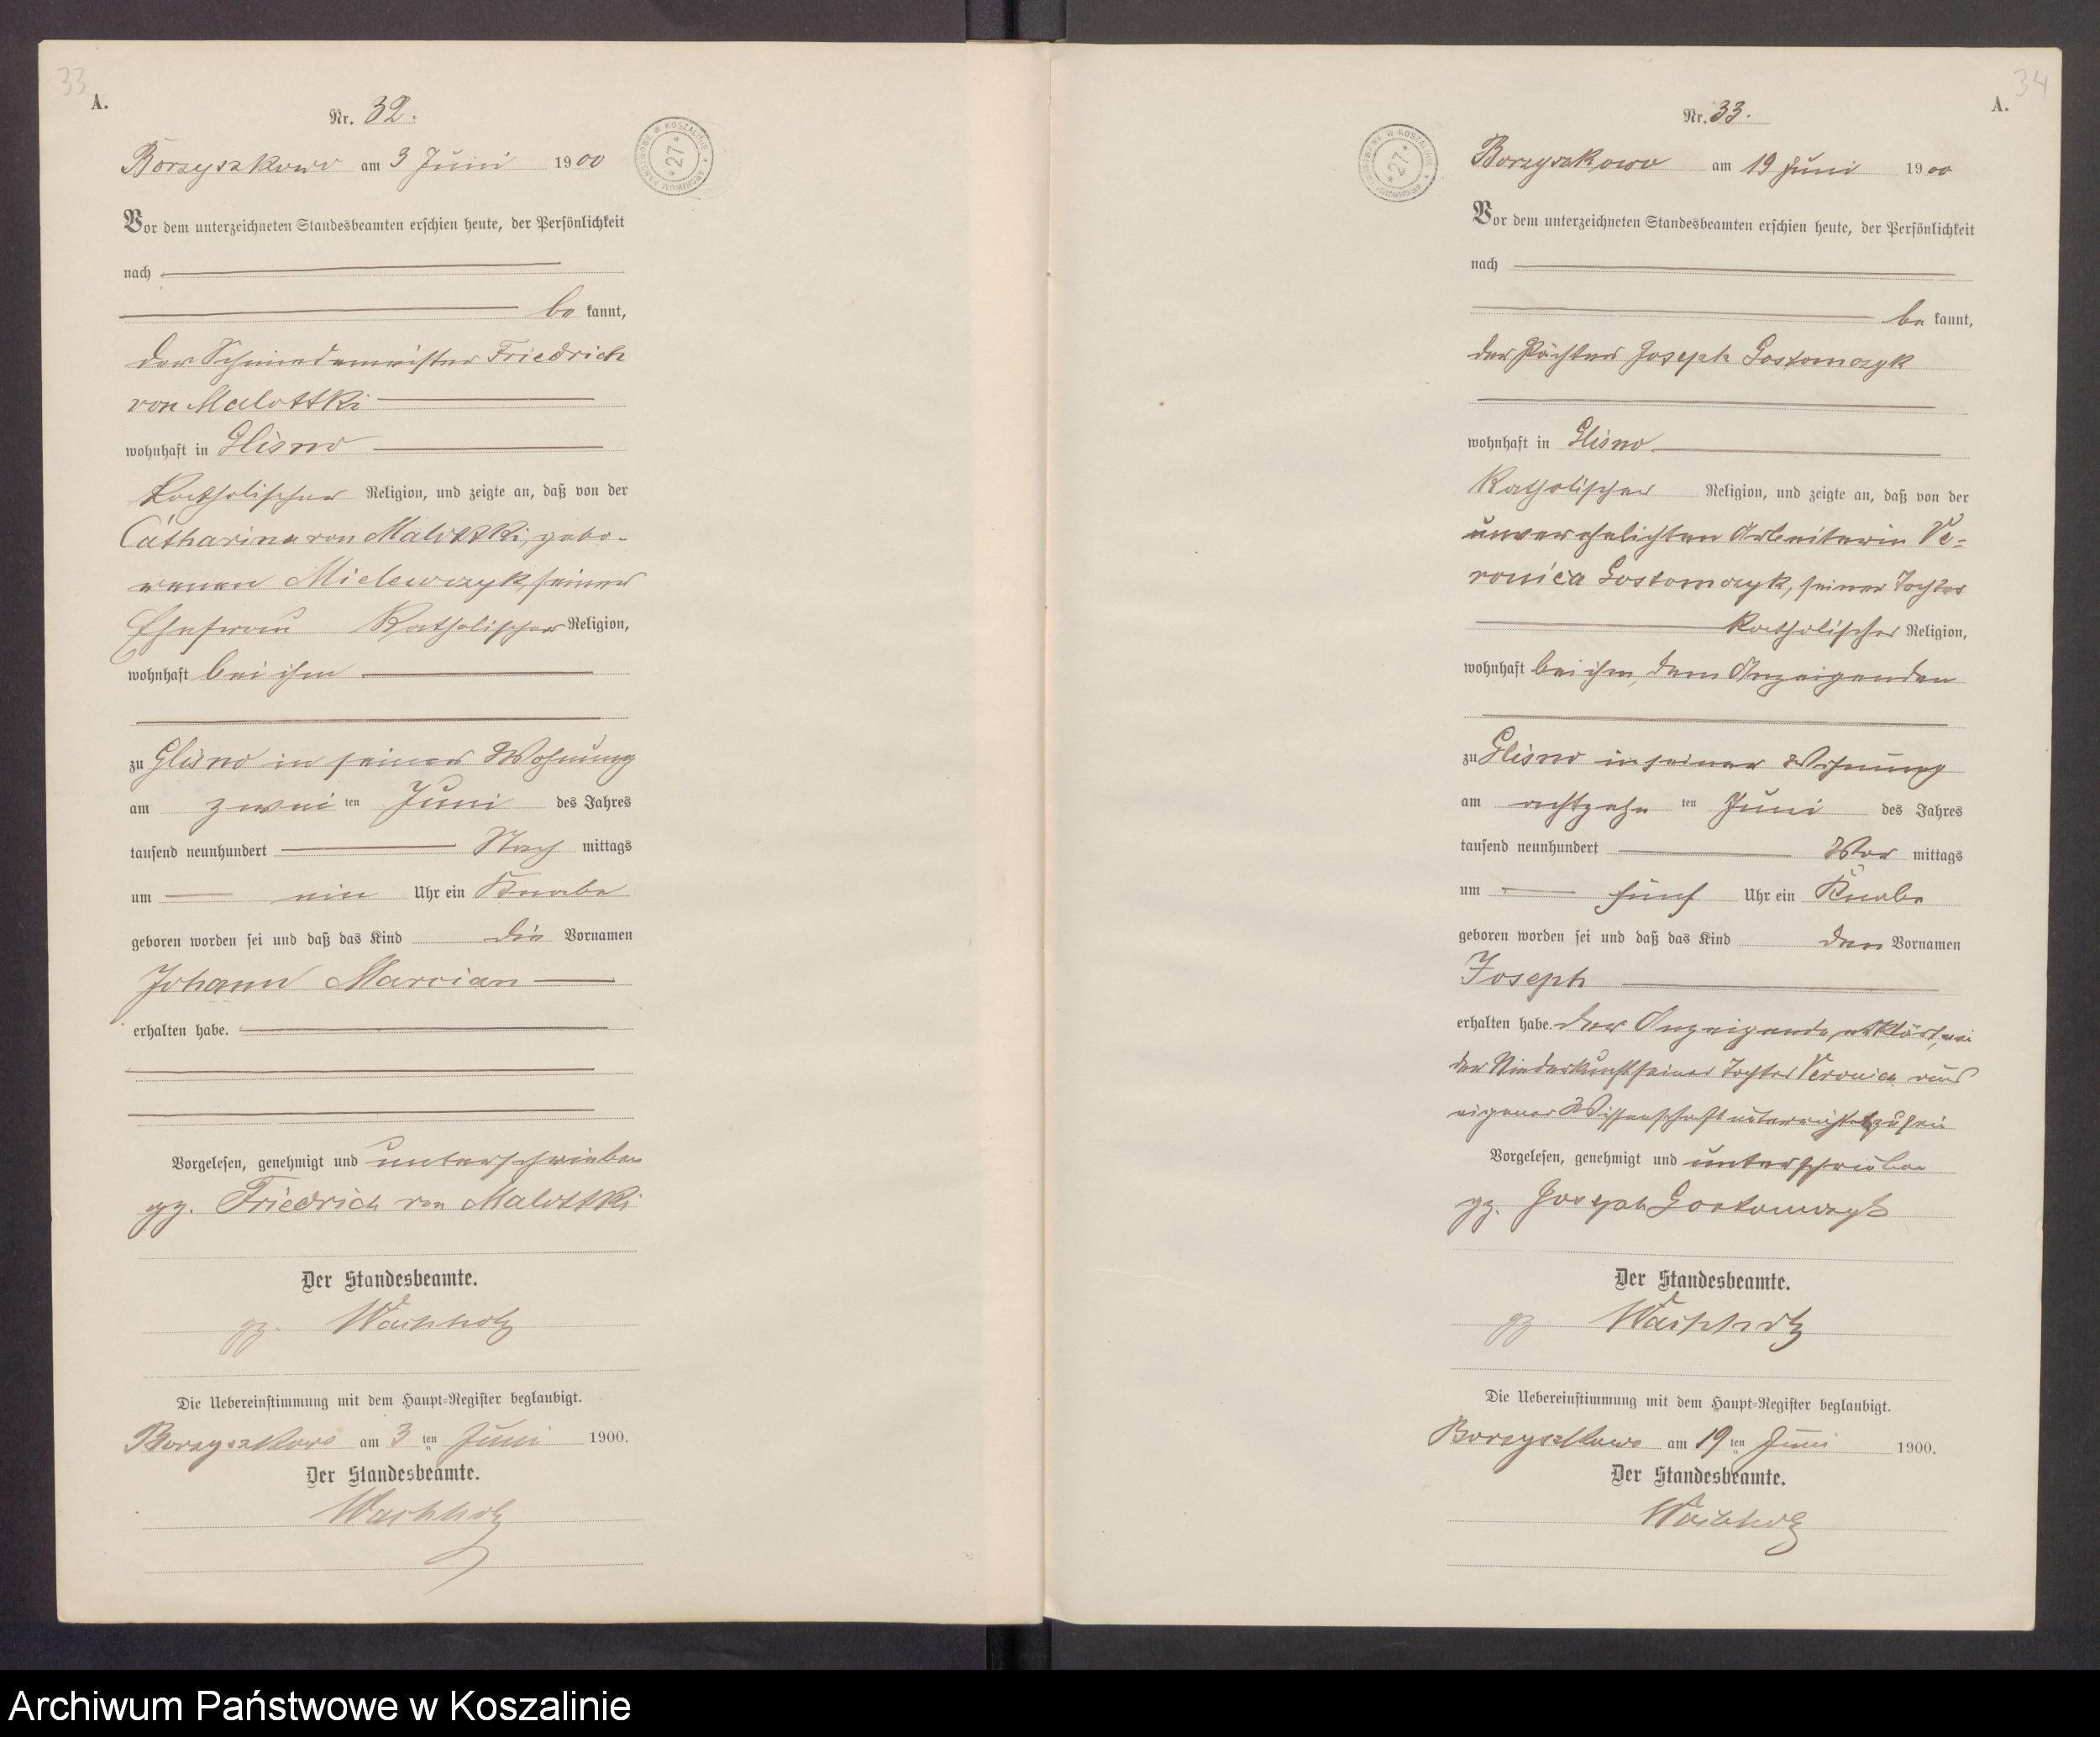 33
A.
Nr. 32.
ARCHIWUM PAŃSTWOWE W KOSZALINIE * 27 *
Borzyszkowo am 3 Juni 1900
Vor dem unterzeichneten Standesbeamten erschien heute, der Persönlichkeit
nach
be kannt,
der Schmiedemeister Friedrich
von Malottki
wohnhaft in Glisno
katholischer Religion, und zeigte an, daß von der
Catharina von Malottki, gebo-
renen Mielewczyk, seiner
Ehefrau katholischer Religion,
wohnhaft bei ihm
zu Glisno in seiner Wohnung
am zwei ten Juni des Jahres
tausend neunhundert Nach mittags
um ein Uhr ein Knabe
geboren worden sei und daß das Kind die Vornamen
Johann Marcian
erhalten habe.
Vorgelesen, genehmigt und unterschrieben
gz. Friedrich von Malottki
Der Standesbeamte.
gz. Wachholz
Die Uebereinstimmung mit dem Haupt-Register beglaubigt.
Borzyszkowo am 3 ten Juni 1900.
Der Standesbeamte.
Wachholz
34
A.
Nr. 33.
ARCHIWUM PAŃSTWOWE W KOSZALINIE * 27 *
Borzyszkowo am 19 Juni 1900
Vor dem unterzeichneten Standesbeamten erschien heute, der Persönlichkeit
nach
be kannt,
der Pächter Joseph Gostomczyk
wohnhaft in Glisno
katholischer Religion, und zeigte an, daß von der
unverehelichten Arbeiterin Ve-
ronica Gostomczyk, seiner Tochter
katholischer Religion,
wohnhaft bei ihm, dem Anzeigenden
zu Glisno in seiner Wohnung
am achtzehn ten Juni des Jahres
tausend neunhundert Vor mittags
um fünf Uhr ein Knabe
geboren worden sei und daß das Kind den Vornamen
Joseph
erhalten habe. Der Anzeigende, erklärt,
der Niederkunft seiner Tochter Veronica aus
eigener Wissenschaft unterrichtet zu sein
Vorgelesen, genehmigt und unterschrieben
gz. Joseph Gostomczyk
Der Standesbeamte.
gz Wachholz
Die Uebereinstimmung mit dem Haupt-Register beglaubigt.
Borzyszkowo am 19 ten Juni 1900.
Der Standesbeamte.
Wachholz
Archiwum Państwowe w Koszalinie